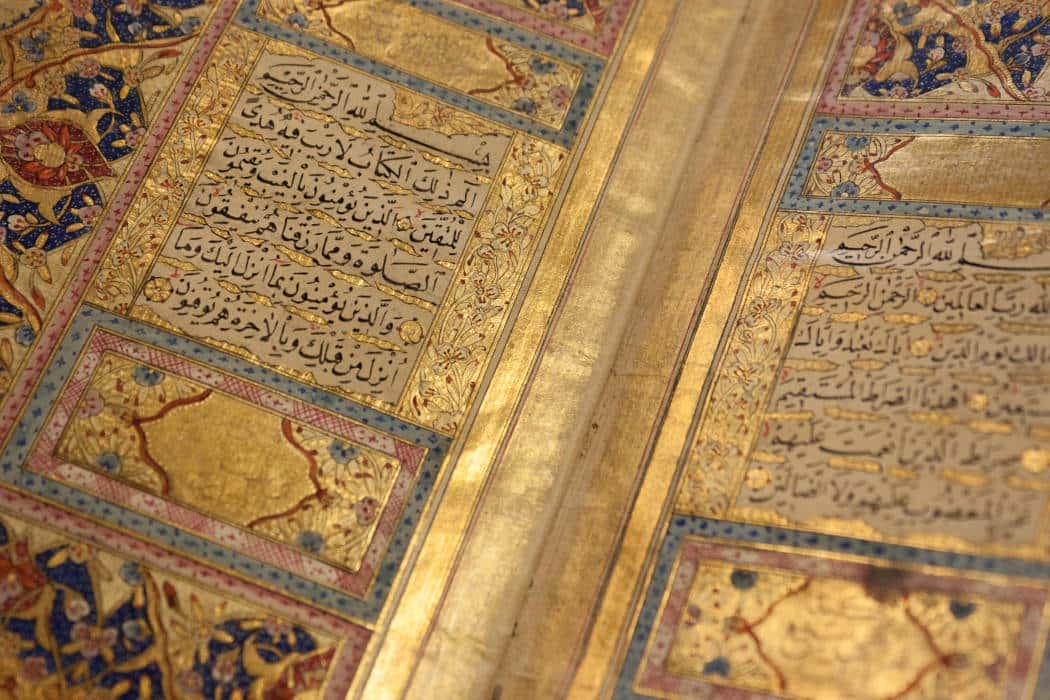 بسم الله الرحمن الرحيم
لله رب العالمين الرحمن الرحيم
مالك يوم الدين اياك نعبد واياك
نستعين اهدنا الصراط المستقيم
صراط الذين انعمت عليهم
غير المغضوب عليهم ولا الضالين
بسم الله الرحمن الرحيم
الم ذلك الكتاب لا ريب فيه هدى
للمتقين الذين يؤمنون بالغيب ويقيمون
الصلوة ومما رزقناهم ينفقون
والذين يؤمنون بما انزل اليك وما
انزل من قبلك وبالاخرة هم يوقنون